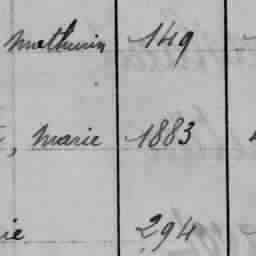 Mathurin 149
, Marie 1883
ie 294